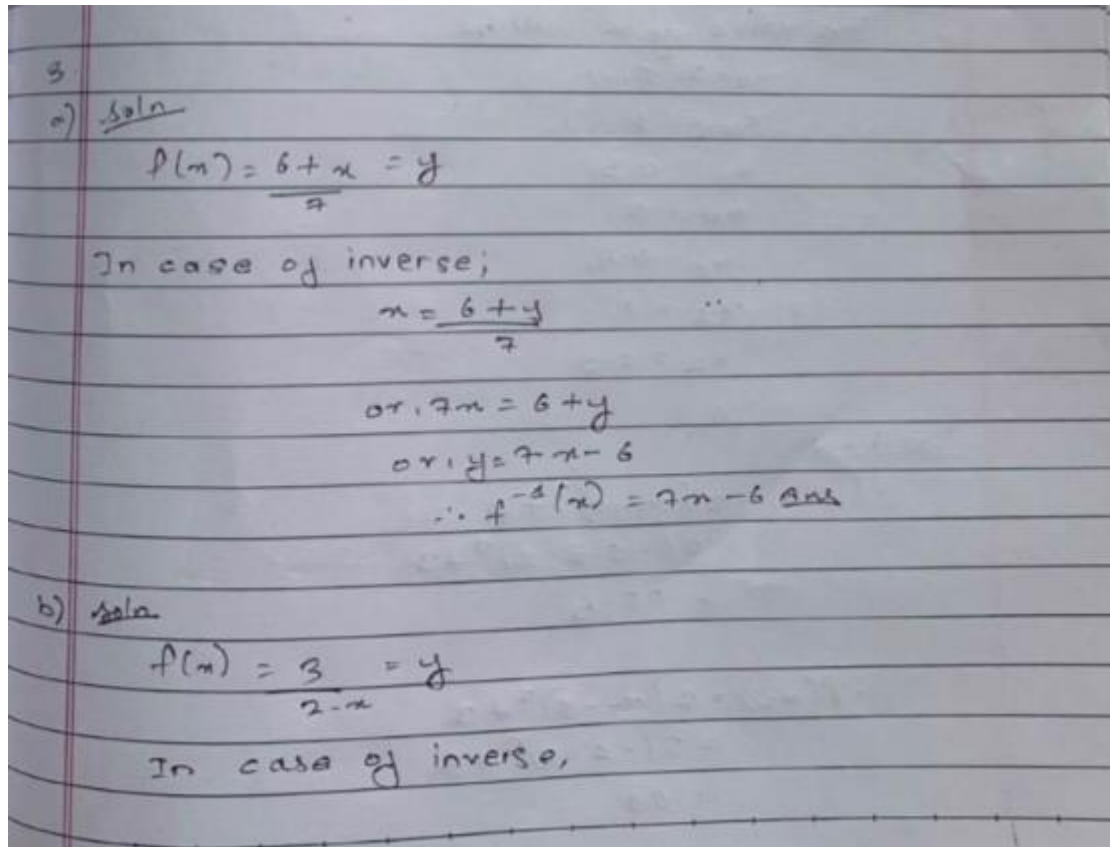 3.
a) soln
f(x) = 6 + x / 7 = y
In case of inverse;
x = 6 + y / 7
or, 7x = 6 + y
or, y = 7x - 6
∴ f⁻¹(x) = 7x - 6 Ans
b) soln
f(x) = 3 / 2 - x = y
In case of inverse,